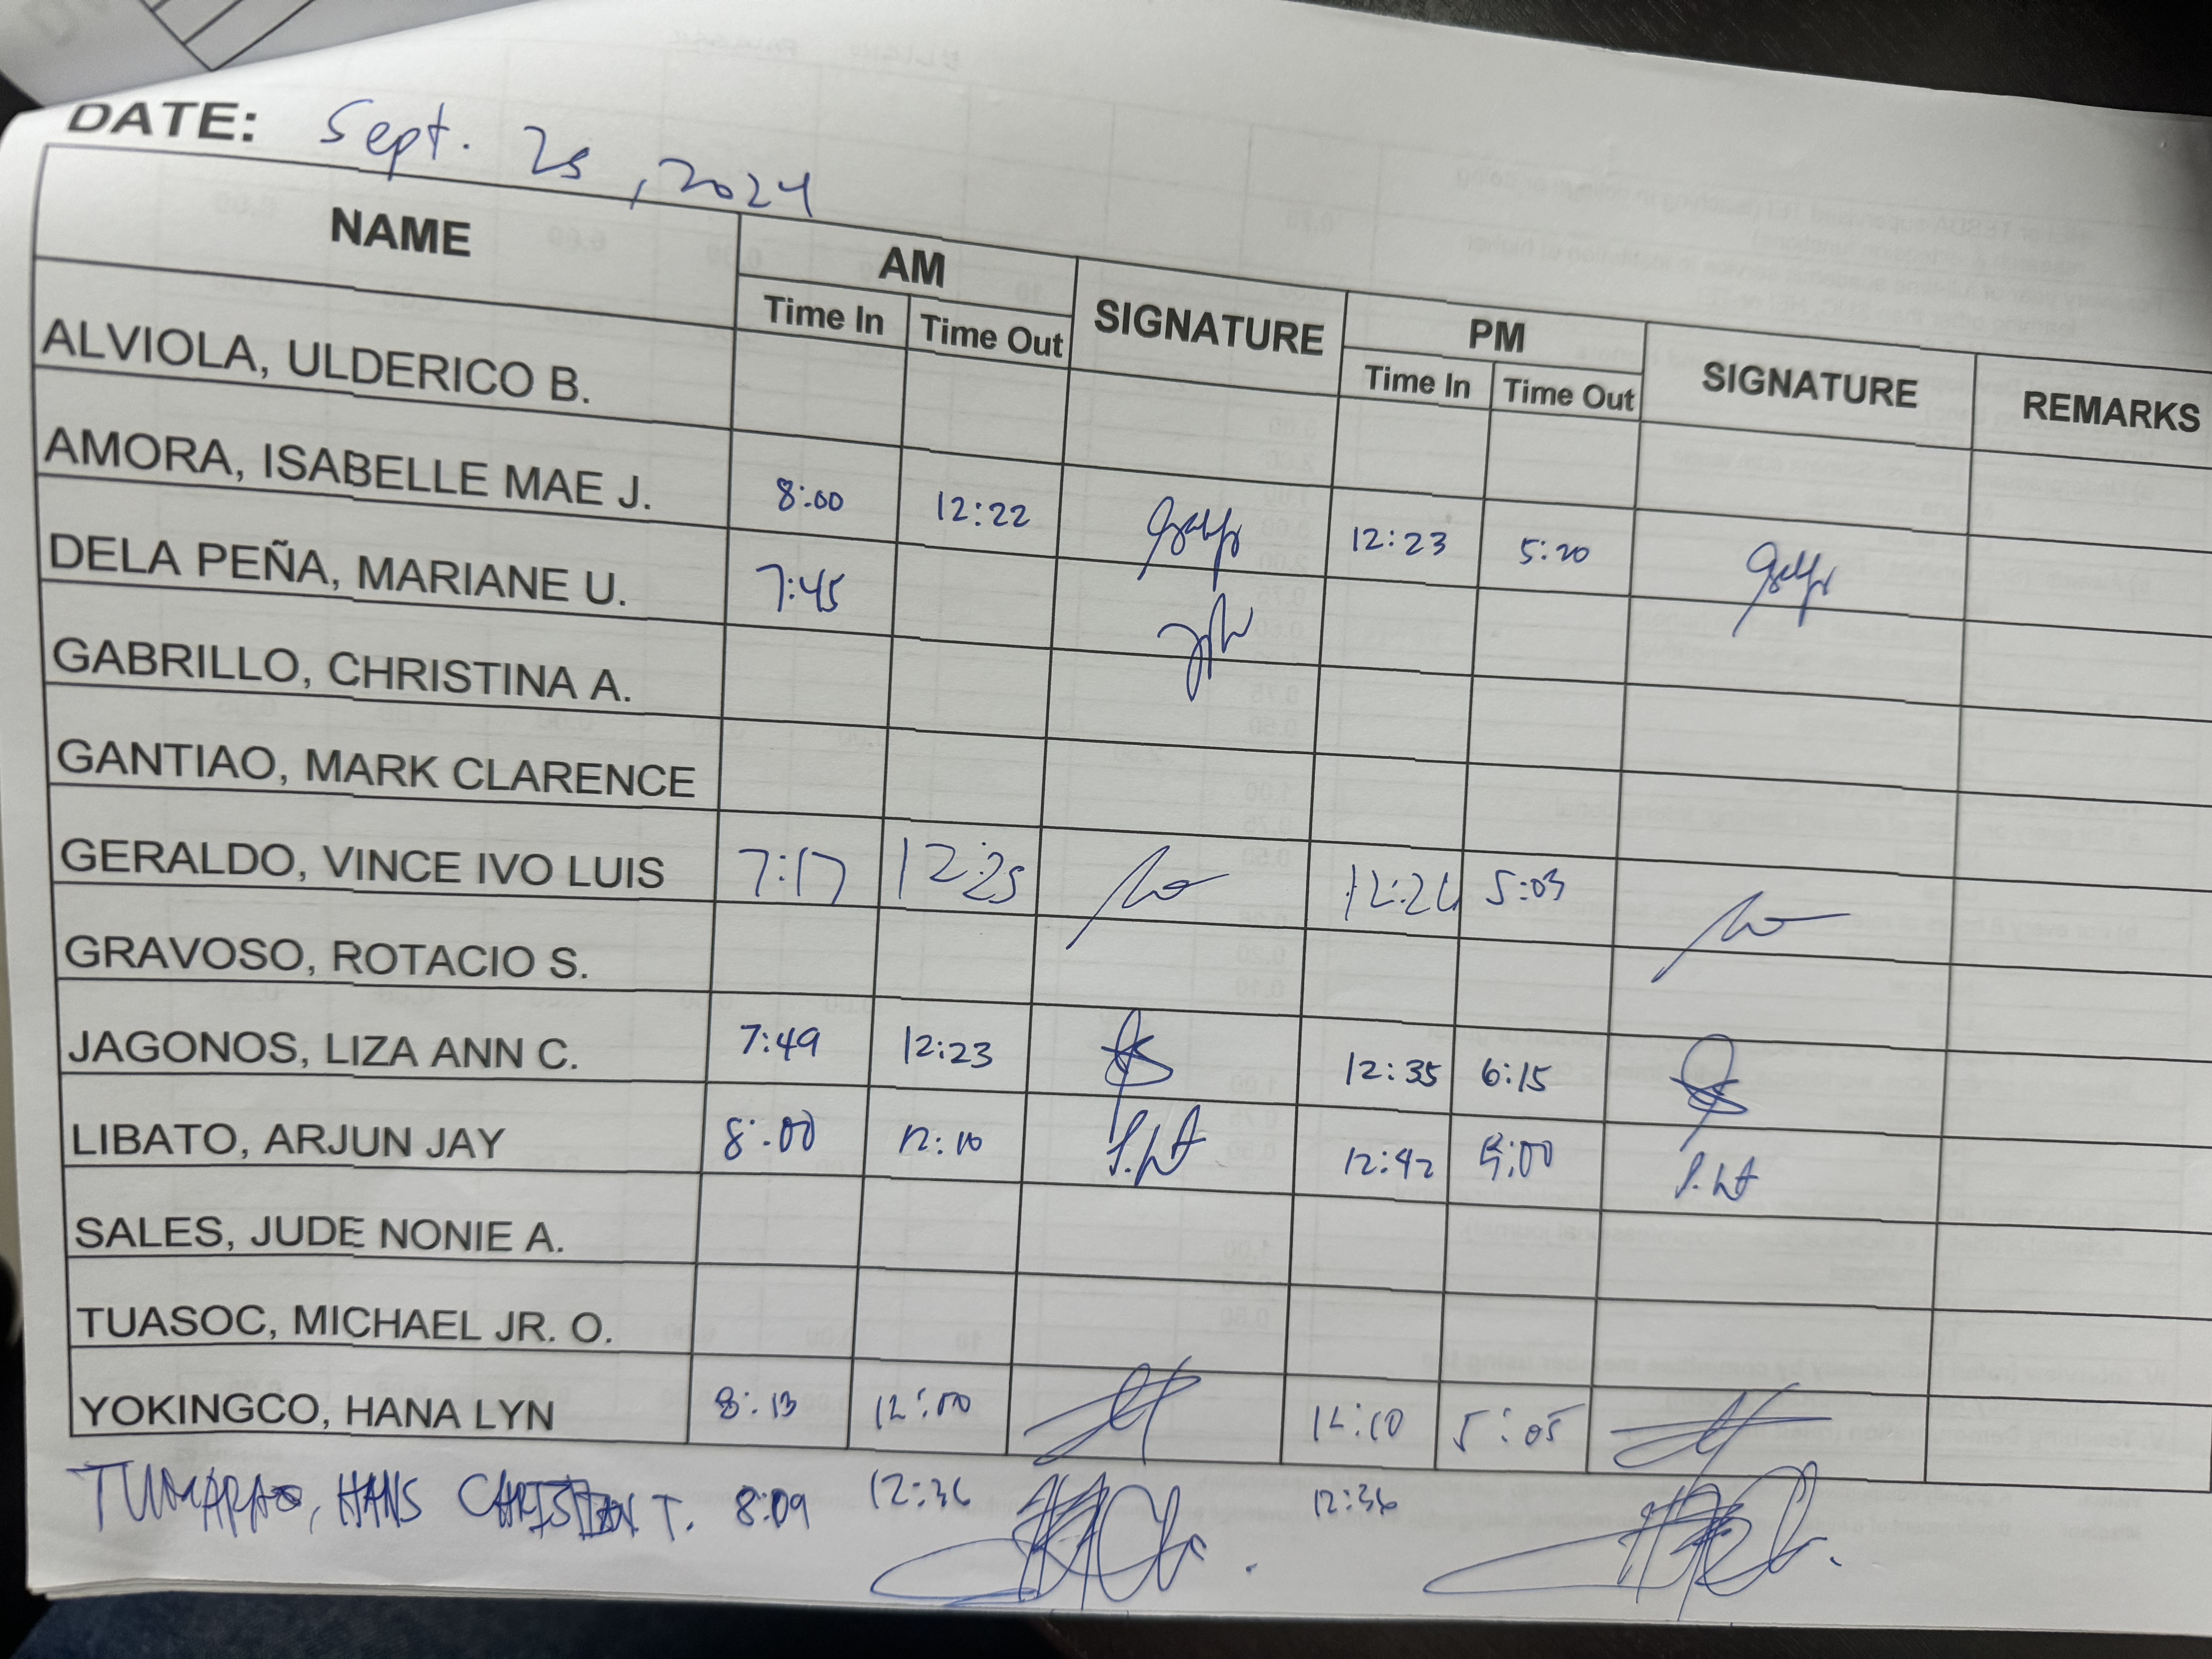 DATE: Sept. 25, 2024
NAME AM SIGNATURE PM SIGNATURE REMARKS
Time In Time Out Time In Time Out
ALVIOLA, ULDERICO B.
AMORA, ISABELLE MAE J. 8:00 12:22 12:23 5:20
DELA PEÑA, MARIANE U. 7:45
GABRILLO, CHRISTINA A.
GANTIAO, MARK CLARENCE
GERALDO, VINCE IVO LUIS 7:17 12:25 12:26 5:03
GRAVOSO, ROTACIO S.
JAGONOS, LIZA ANN C. 7:49 12:23 12:35 6:15
LIBATO, ARJUN JAY 8:00 12:10 12:42 5:00
SALES, JUDE NONIE A.
TUASOC, MICHAEL JR. O.
YOKINGCO, HANA LYN 8:13 12:00 12:10 5:05
HANS CHRISTIAN T. 8:09 12:36 12:36